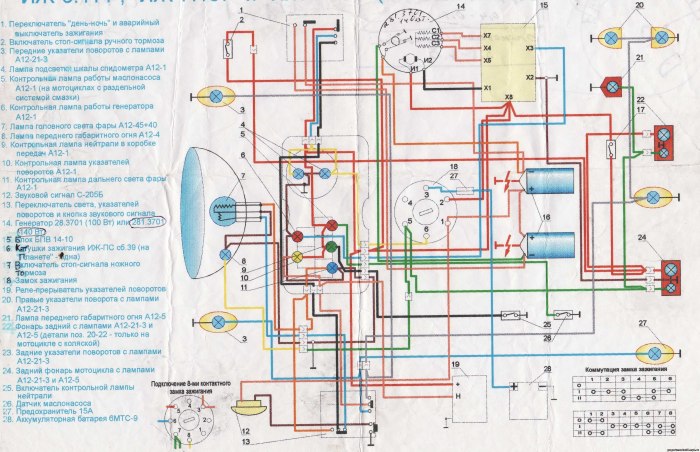 1. Переключатель "день-ночь" и аварийный
выключатель зажигания
2. Включатель стоп-сигнала ручного тормоза
3. Передние указатели поворотов с лампами
А12-21-3
4. Лампа подсветки шкалы спидометра А12-1
5. Контрольная лампа работы маслонасоса
А12-1 (на мотоциклах с раздельной
системой смазки)
6. Контрольная лампа работы генератора
А12-1
7. Лампа головного света фары А12-45+40
8. Лампа переднего габаритного огня А12-4
9. Контрольная лампа нейтрали в коробке
передач А12-1
10. Контрольная лампа указателей
поворотов А12-1
11. Контрольная лампа дальнего света фары
А12-1
12. Звуковой сигнал С-205Б
13. Переключатель света, указателей
поворотов и кнопка звукового сигнала
14. Генератор 28.3701 (100 Вт) или 281.3701
(140 Вт)
Блок БПВ 14-10
Катушки зажигания ИЖ-ПС об.39 (на
"Планете" - одна)
Включатель стоп-сигнала ножного
тормоза
Замок зажигания
19. Реле-прерыватель указателей поворотов
20. Правые указатели поворота с лампами
А12-21-3
21. Лампа переднего габаритного огня А12-5
22. Фонарь задний с лампами А12-21-3 и
А12-5 (детали поз. 20-22 - только на
мотоцикле с коляской)
23. Задние указатели поворотов с лампами
А12-21-3
24. Задний фонарь мотоцикла с лампами
А12-21-3 и А12-5
25. Включатель контрольной лампы
нейтрали
26. Датчик маслонасоса
27. Предохранитель 15А
28. Аккумуляторная батарея 6МТС-9
Подключение 8-ми контактного
замка зажигания
Коммутация замка зажигания
1 2 3 4 5 6
0
I
II
1 2 3 4 5 6 7 8
0
I
II
X7
X4
X5
X1
X3
X2
X6
И1
И2
1
2
3
3
4
5
6
7
8
9
10
11
12
13
14
15
16
17
18
27
19
20
21
22
23
24
25
26
27
28